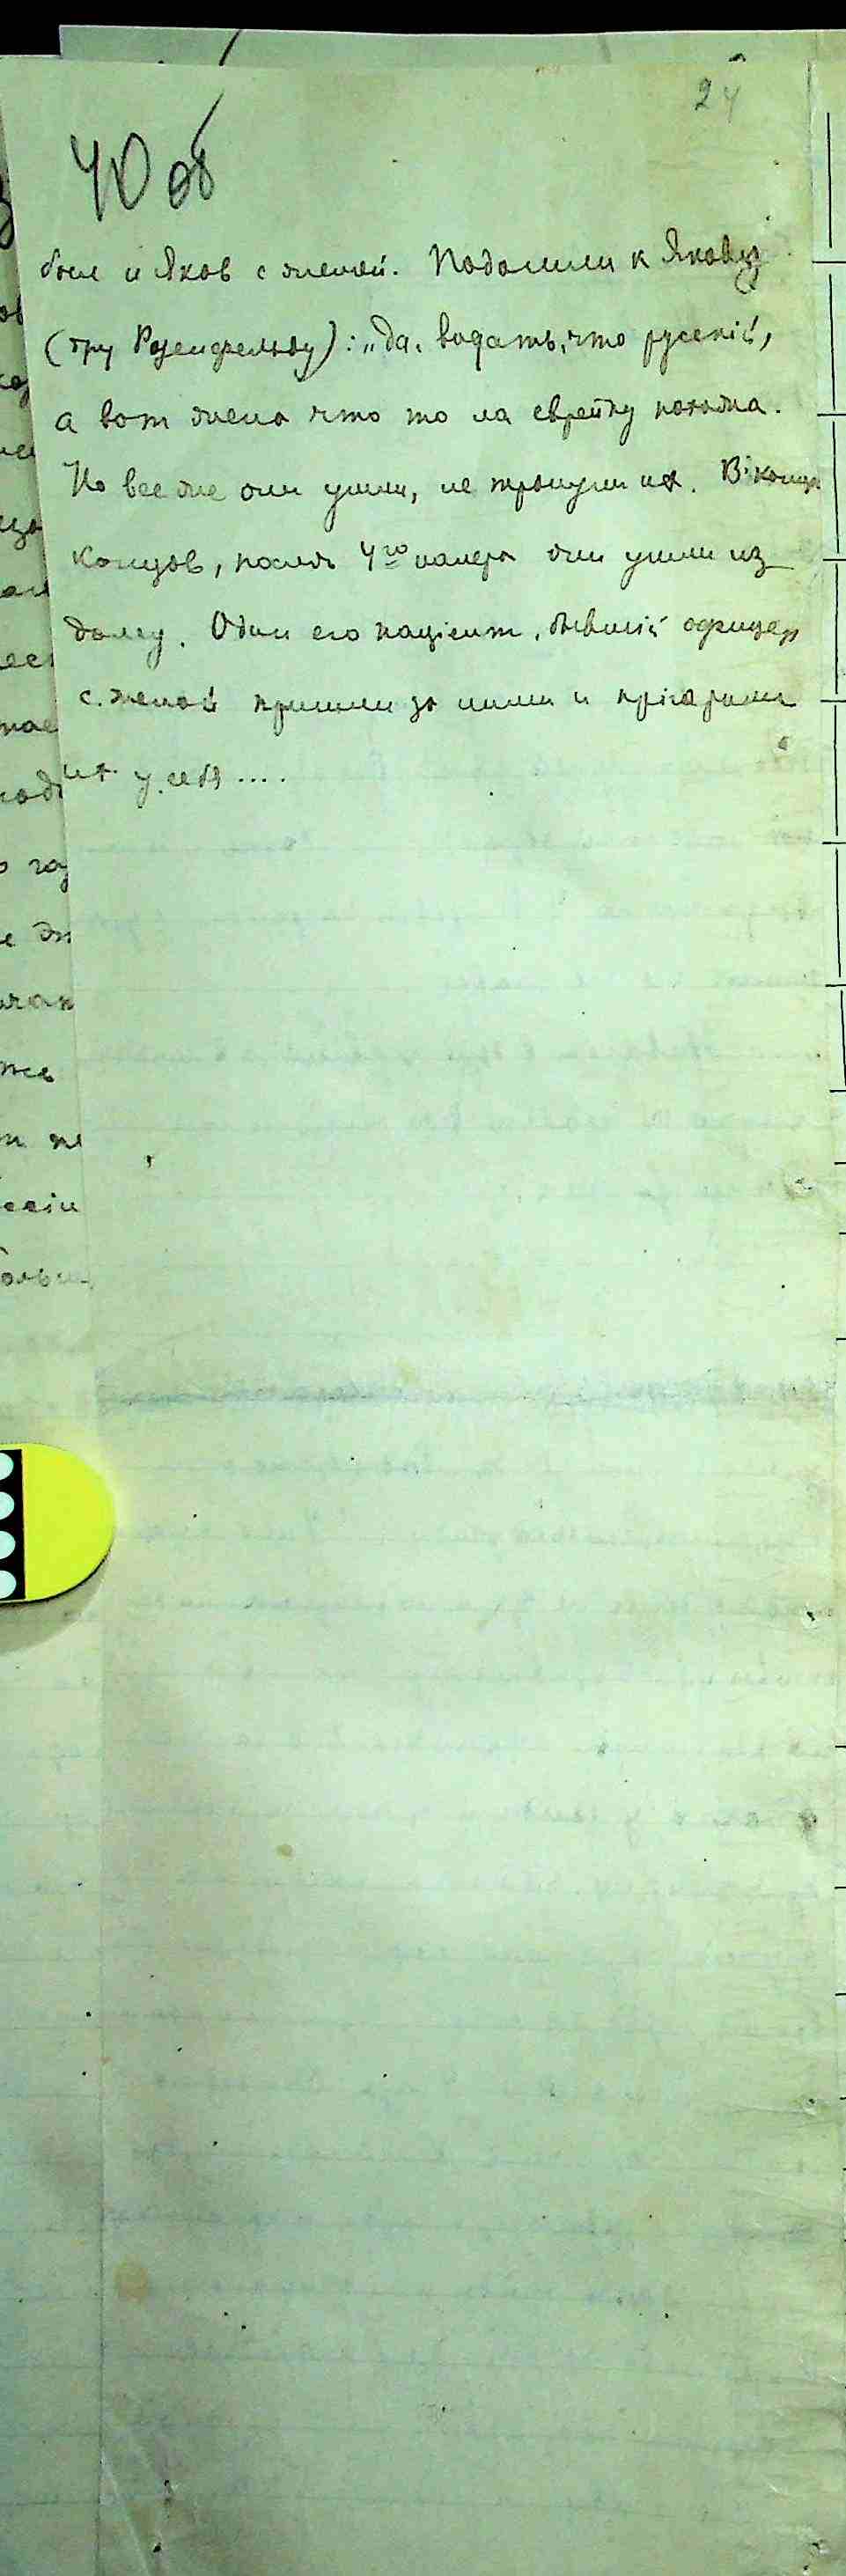 24
40 об
был и Яков с женой. Подошли к Якову
(д-ру Розенфельду): „да, видать, что русскій,
а вот жена что то на еврейку похожа.
Но все же они ушли, не тронули их. В конце
концов, после 4го налета они ушли из
дому. Один его паціент, бывшій офицер
с женой пришли за ними и
их у себя ....